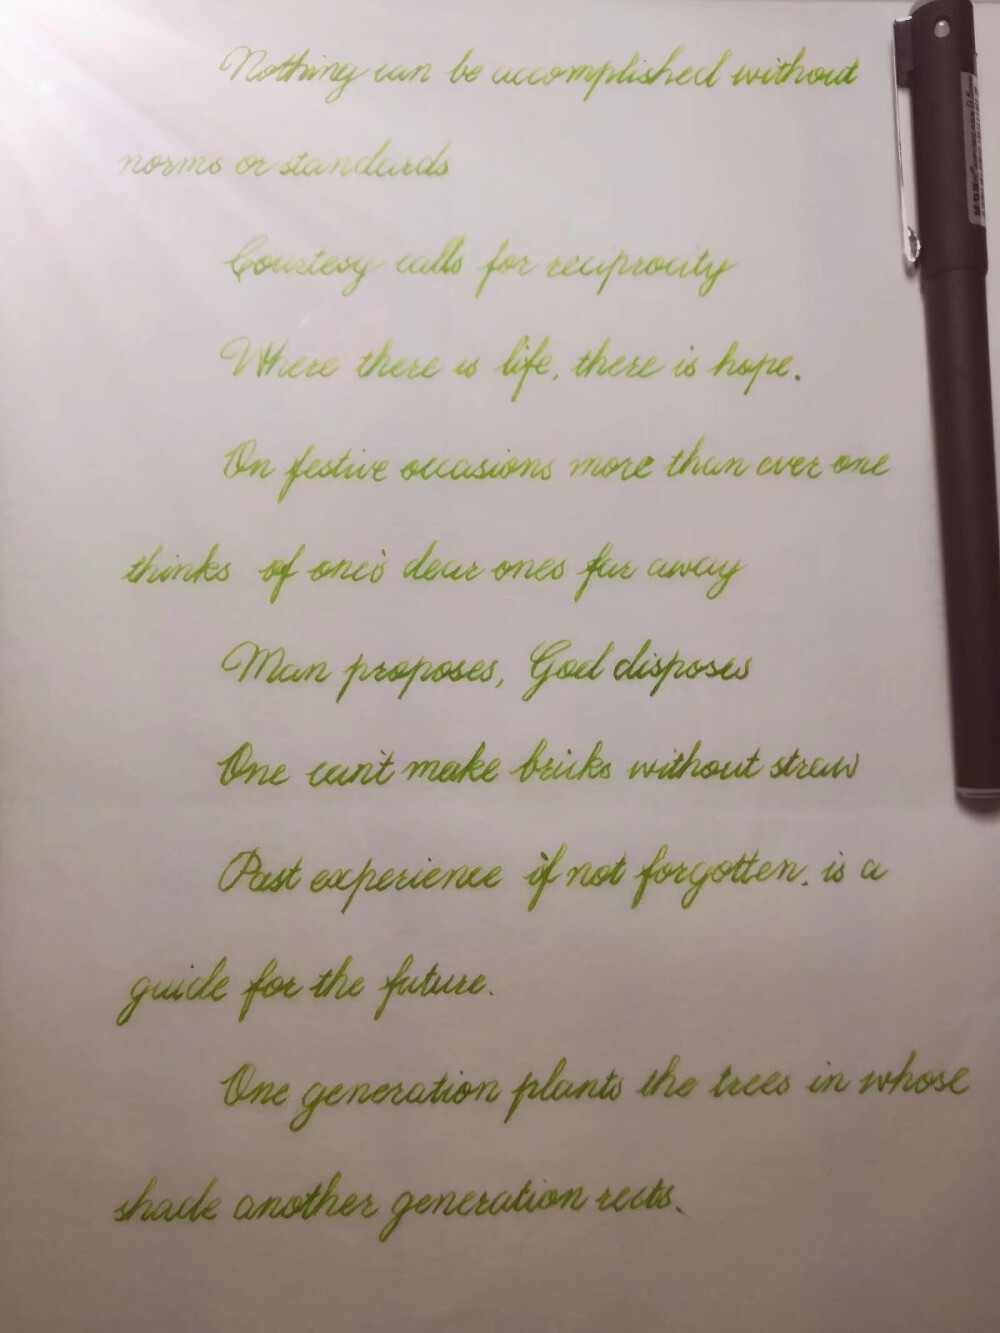 Nothing can be accomplished without
norms or standards
Courtesy calls for reciprocity
Where there is life, there is hope.
On festive occasions more than ever one
thinks of one's dear ones far away
Man proposes, God disposes
One can't make bricks without straw
Past experience if not forgotten, is a
guide for the future.
One generation plants the trees in whose
shade another generation rests.
M&G